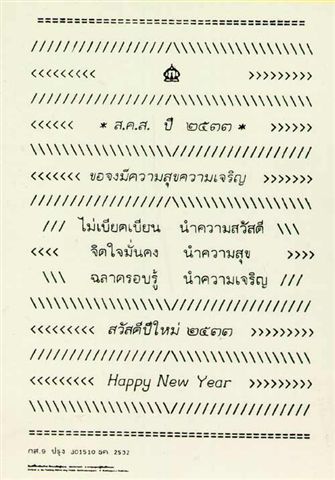 ================================
//////////////////\\\\\\\\\\\\\\\\\\
<<<<<<<<< >>>>>>>>>
//////////////////\\\\\\\\\\\\\\\\\\
<<<<<< * ส.ค.ส. ปี ๒๕๓๓ * >>>>>>
\\\\\\\\\\\\\\\\\\//////////////////
<<<<<< ขอจงมีความสุขความเจริญ >>>>>>
//////////////////\\\\\\\\\\\\\\\\\\
/// ไม่เบียดเบียน นำความสวัสดี \\\
<<<< จิตใจมั่นคง นำความสุข >>>>
\\\ ฉลาดรอบรู้ นำความเจริญ ///
\\\\\\\\\\\\\\\\\\//////////////////
<<<<<<<< สวัสดีปีใหม่ ๒๕๓๓ >>>>>>>>
//////////////////\\\\\\\\\\\\\\\\\\
<<<<<<<<< Happy New Year >>>>>>>>>
\\\\\\\\\\\\\\\\\\//////////////////
================================
กส.9 ปรุง 301510 ธค. 2532